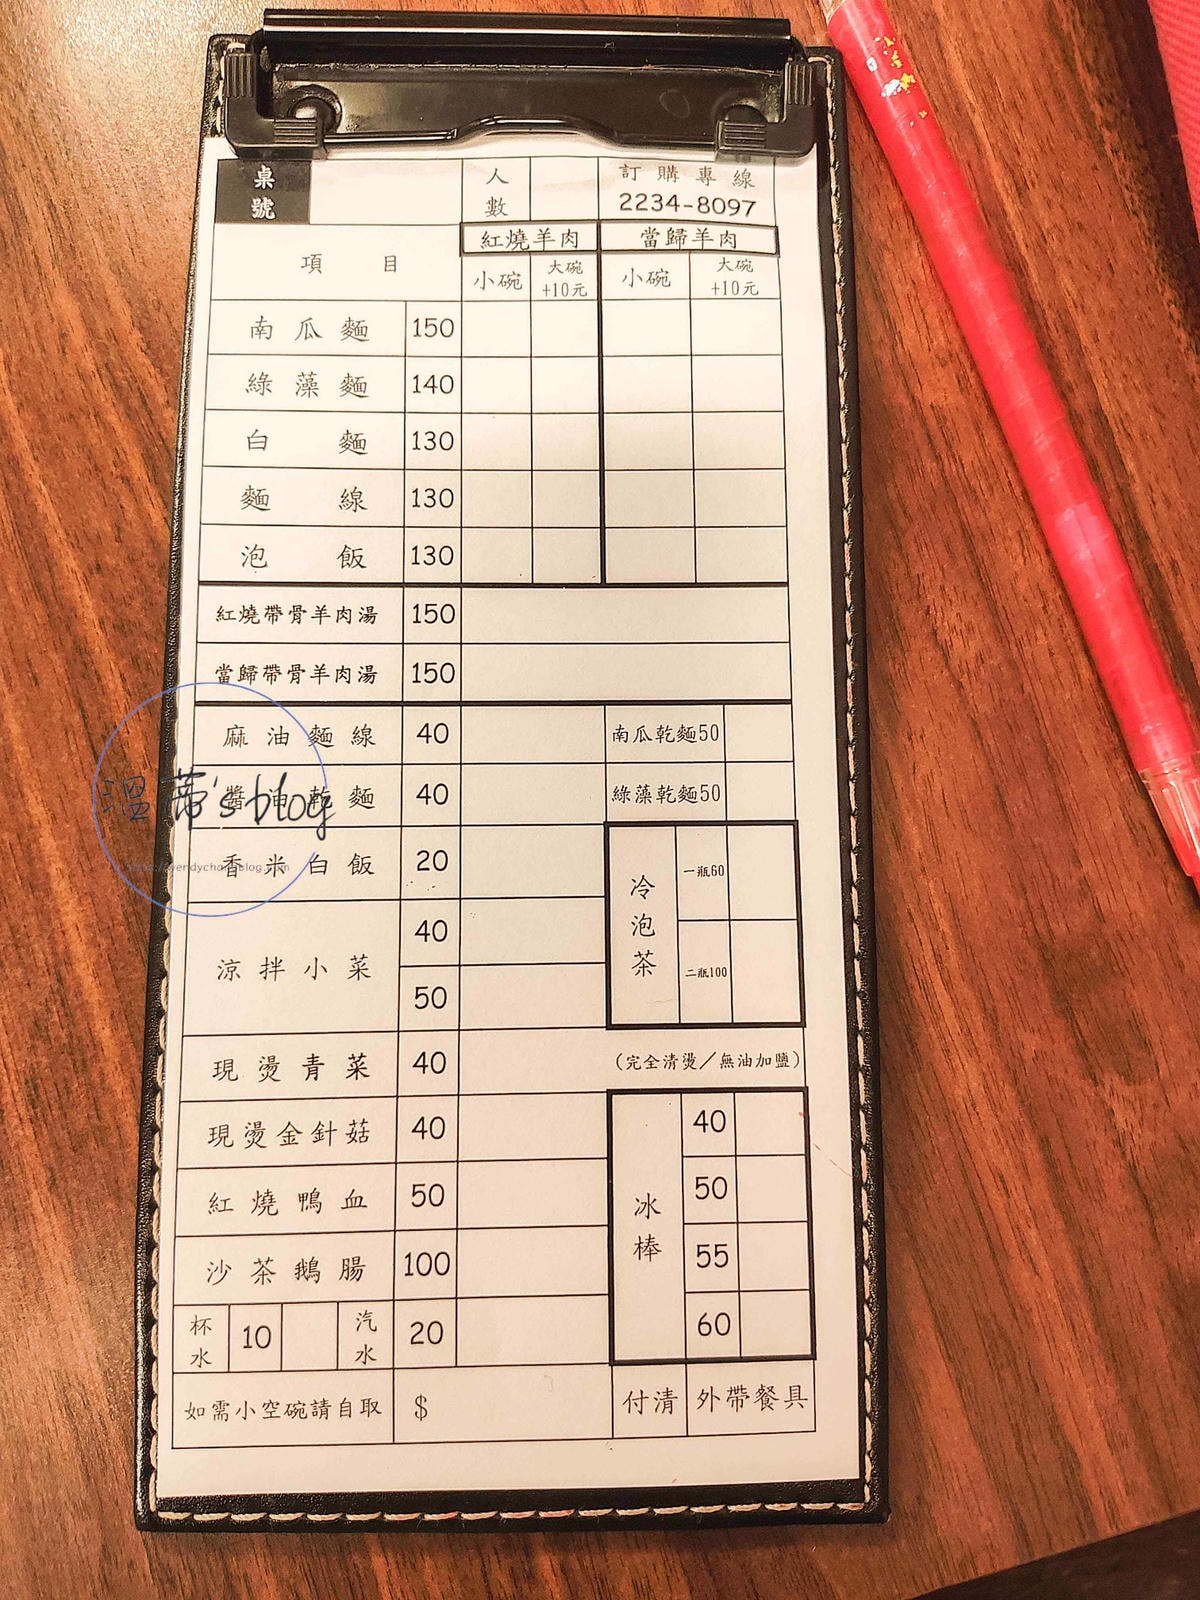 桌號 人數 訂購專線
2234-8097
項目 紅燒羊肉 當歸羊肉
小碗 大碗+10元 小碗 大碗+10元
南瓜麵 150
綠藻麵 140
白麵 130
麵線 130
泡飯 130
紅燒帶骨羊肉湯 150
當歸帶骨羊肉湯 150
麻油麵線 40 南瓜乾麵50
醬油乾麵 40 綠藻乾麵50
溫蒂's blog
香米白飯 20
冷泡茶 一瓶60
二瓶100
涼拌小菜 40
50
現燙青菜 40 (完全清燙/無油加鹽)
現燙金針菇 40
紅燒鴨血 50
沙茶鵝腸 100
冰棒 40
50
55
60
杯水 10 汽水 20
如需小空碗請自取 $ 付清 外帶餐具